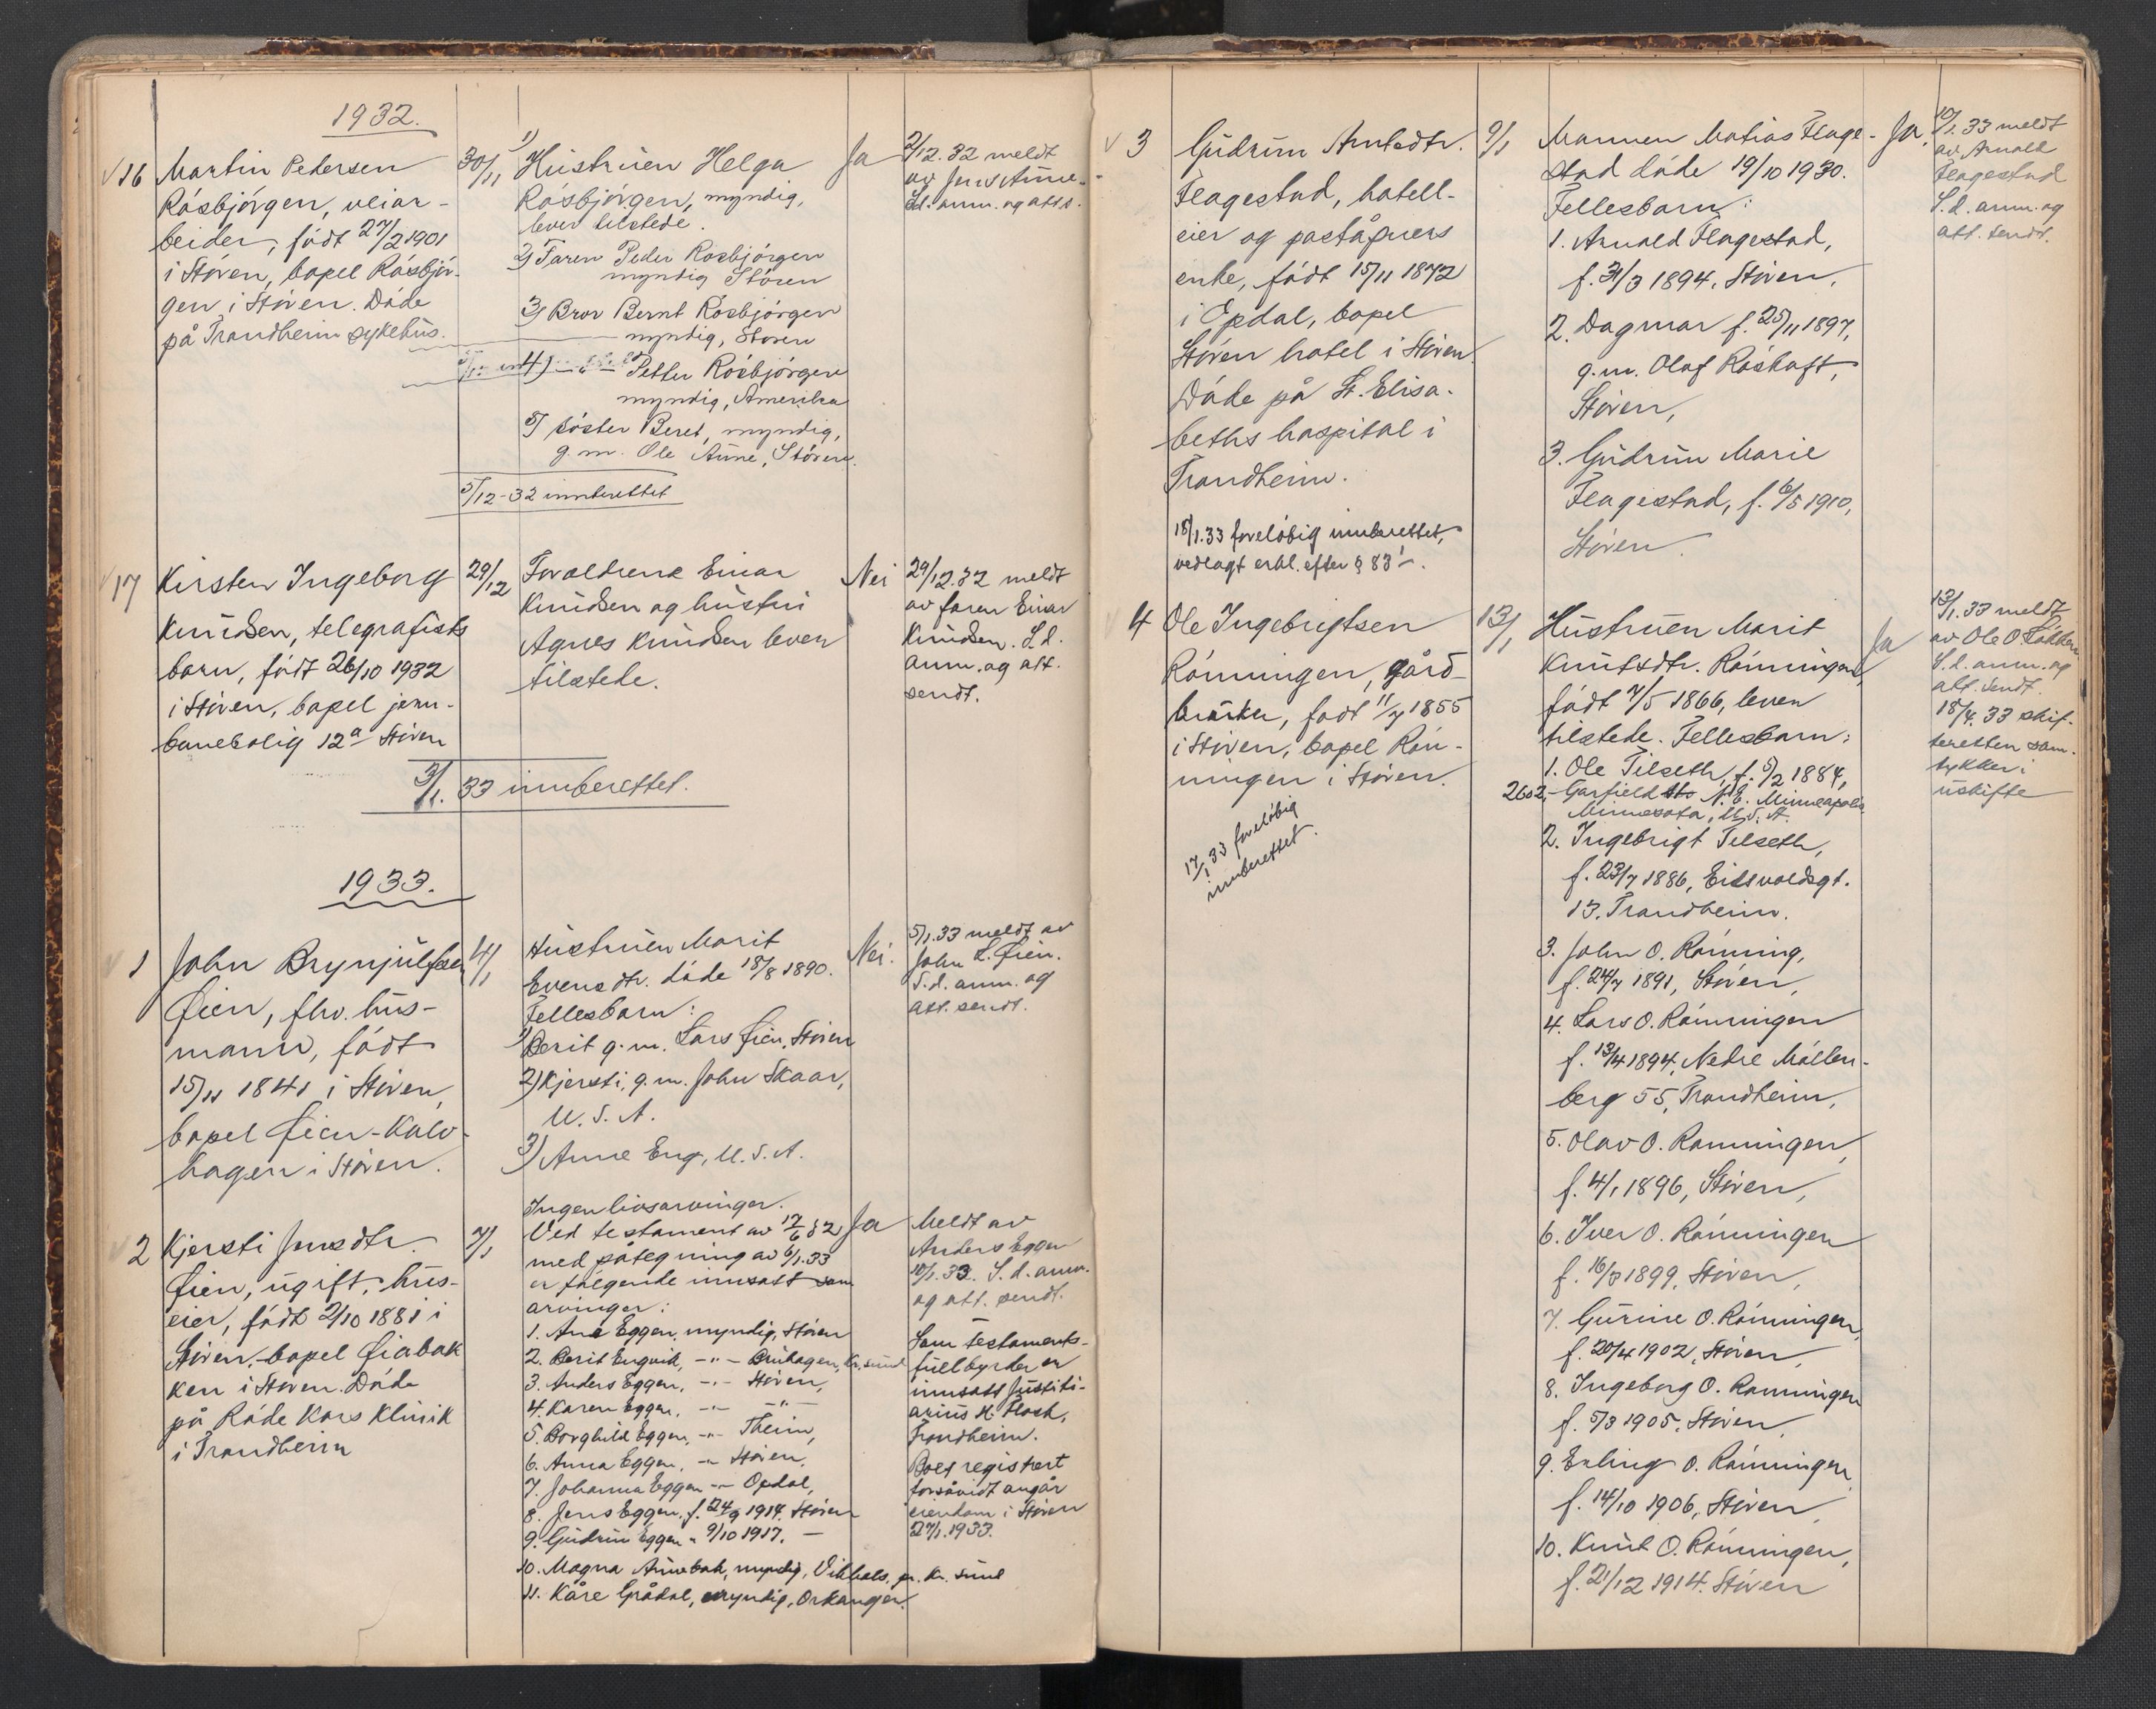 1932.
16
Martin Pedersen
Rósbjörgen, veiar-
beider, födt 27/2 1901
i Stören, bopel Rósbjör-
gen i Stören. Döde
på Trondheim sykehus.
30/11
1)
Hustruen Helga
Rósbjörgen, myndig,
lever tilstede.
2) Faren Peder Rosbjörgen
myndig Stören
3) Bror Bernt Rösbjörgen
myndig, Stören
4) — " — Petter Rösbjörgen
myndig, Amerika
5) söster Beret, myndig,
g.m. Ole Aune, Stören.
5/12-32 innberettet
Ja
2/12.32 meldt
av Jens Aune.
S.d. anm. og att s.
17
Kirsten Ingeborg
Knudsen, telegrafists
barn, födt 26/10 1932
i Stören, bopel jern-
banebolig 12a Stören
29/12
Foreldrene Einar
Knudsen og hustru
Agnes Knudsen lever
tilstede.
Nei
29/12.32 meldt
av faren Einar
Knudsen. S.d.
anm. og att.
sendt.
3/1. 33 innberettet.
1933.
1
John Brynjulfsen
Øien, fhv. hus-
mann, födt
15/11 1841 i Stören,
bopel Øien-Kalv-
hagen i Stören.
4/1
Hustruen Marit
Evensdtr. döde 18/8 1890.
Fellesbarn:
1) Berit g.m. Lars Øien, Stören
2) Kjersti, g.m. John Skaar,
U.S.A.
3) Anne Eng, U.S.A.
Nei.
5/1.33 meldt av
John L. Øien.
S.d. anm. og
att. sendt.
2
Kjersti Jensdtr.
Øien, ugift, hus-
eier, födt 2/10 1881 i
Stören, bopel Øiabak
ken i Stören. Döde
på Röde Kors Klinik
i Trondheim
7/1
Ingen livsarvinger.
Ved testament av 17/6 32
med påtegning av 6/1.33
er fölgende innsatt som
arvinger:
1. Ane Eggen, myndig, Stören
2. Berit Engvik, -"- Bruhagen, Kr.sund
3. Anders Eggen, -"- Stören,
4. Karen Eggen, -"- -"-
5. Borghild Eggen, -"- Theim,
6. Anna Eggen, -"- Stören,
7. Johanna Eggen -"- Opdal,
8. Jens Eggen, f. 24/9 1914, Stören
9. Gudrun Eggen " 9/10 1917, —
10. Magna Aunebak, myndig, Vikhals, pr. Kr. sund
11. Kåre Grådal, myndig, Orkanger.
Ja
Meldt av
Anders Eggen
10/1.33. S.d. anm.
og att. sendt.
Som testaments-
fullbyrder er
innsatt Justiti-
arius H. Flock,
Trondheim.
Boet registrert
forsåvidt angår
eiendom i Stören
27/1.1933.
3
Gudrun Arntsdtr.
Flagestad, hotell-
eier og poståpners
enke, födt 15/11 1872
i Opdal, bopel
Stören hotel i Stören.
Döde på St. Elisa-
beths hospital i
Trondheim.
18/1.33 forelöbig innberettet,
vedlagt erkl. efter § 83
9/1
Mannen Matias Flage-
stad döde 19/10 1930.
Fellesbarn:
1. Arnold Flagestad,
f. 31/3 1894, Stören,
2. Dagmar f. 25/11 1897,
g.m. Olaf Röskaft,
Stören,
3. Gudrun Marie
Flagestad, f. 6/5 1910,
Stören.
Ja,
10/1.33 meldt
av Arnold
Flagestad
S.d. anm. og
att. sendt.
4
Ole Ingebrigtsen
Rönningen, gård-
bruker, födt 11/7 1855
i Stören, bopel Rön-
ningen i Stören.
17/1 33 forelöbig
innberettet.
13/1
Hustruen Marit
Knutsdtr. Rönningen,
födt 7/5 1866, lever
tilstede. Fellesbarn:
1. Ole Tilseth, f. 5/2 1884,
2602, Garfield N.E. Minneapolis
Minnesota, U.S.A.
2. Ingebrigt Tilseth,
f. 23/7 1886, Eidsvoldsgt.
13. Trondheim.
3. John O. Rönning,
f. 24/7 1891, Stören,
4. Lars O. Rönningen
f. 13/4 1894, Nedre Möllen-
berg 55, Trondheim,
5. Olav O. Rönningen,
f. 4/1 1896, Stören,
6. Iver O. Rönningen
f. 16/8 1899, Stören,
7. Gurine O. Rönningen,
f. 20/4 1902, Stören,
8. Ingeborg O. Rönningen
f. 5/3 1905, Stören,
9. Erling O. Rönningen,
f. 14/10 1906, Stören,
10. Knut O. Rönningen,
f. 21/12 1914. Stören
Ja
13/1.33 meldt
av Ole O.
S.d. anm. og
att. sendt.
18/4.33 skif-
teretten sam-
tykker i
uskifte